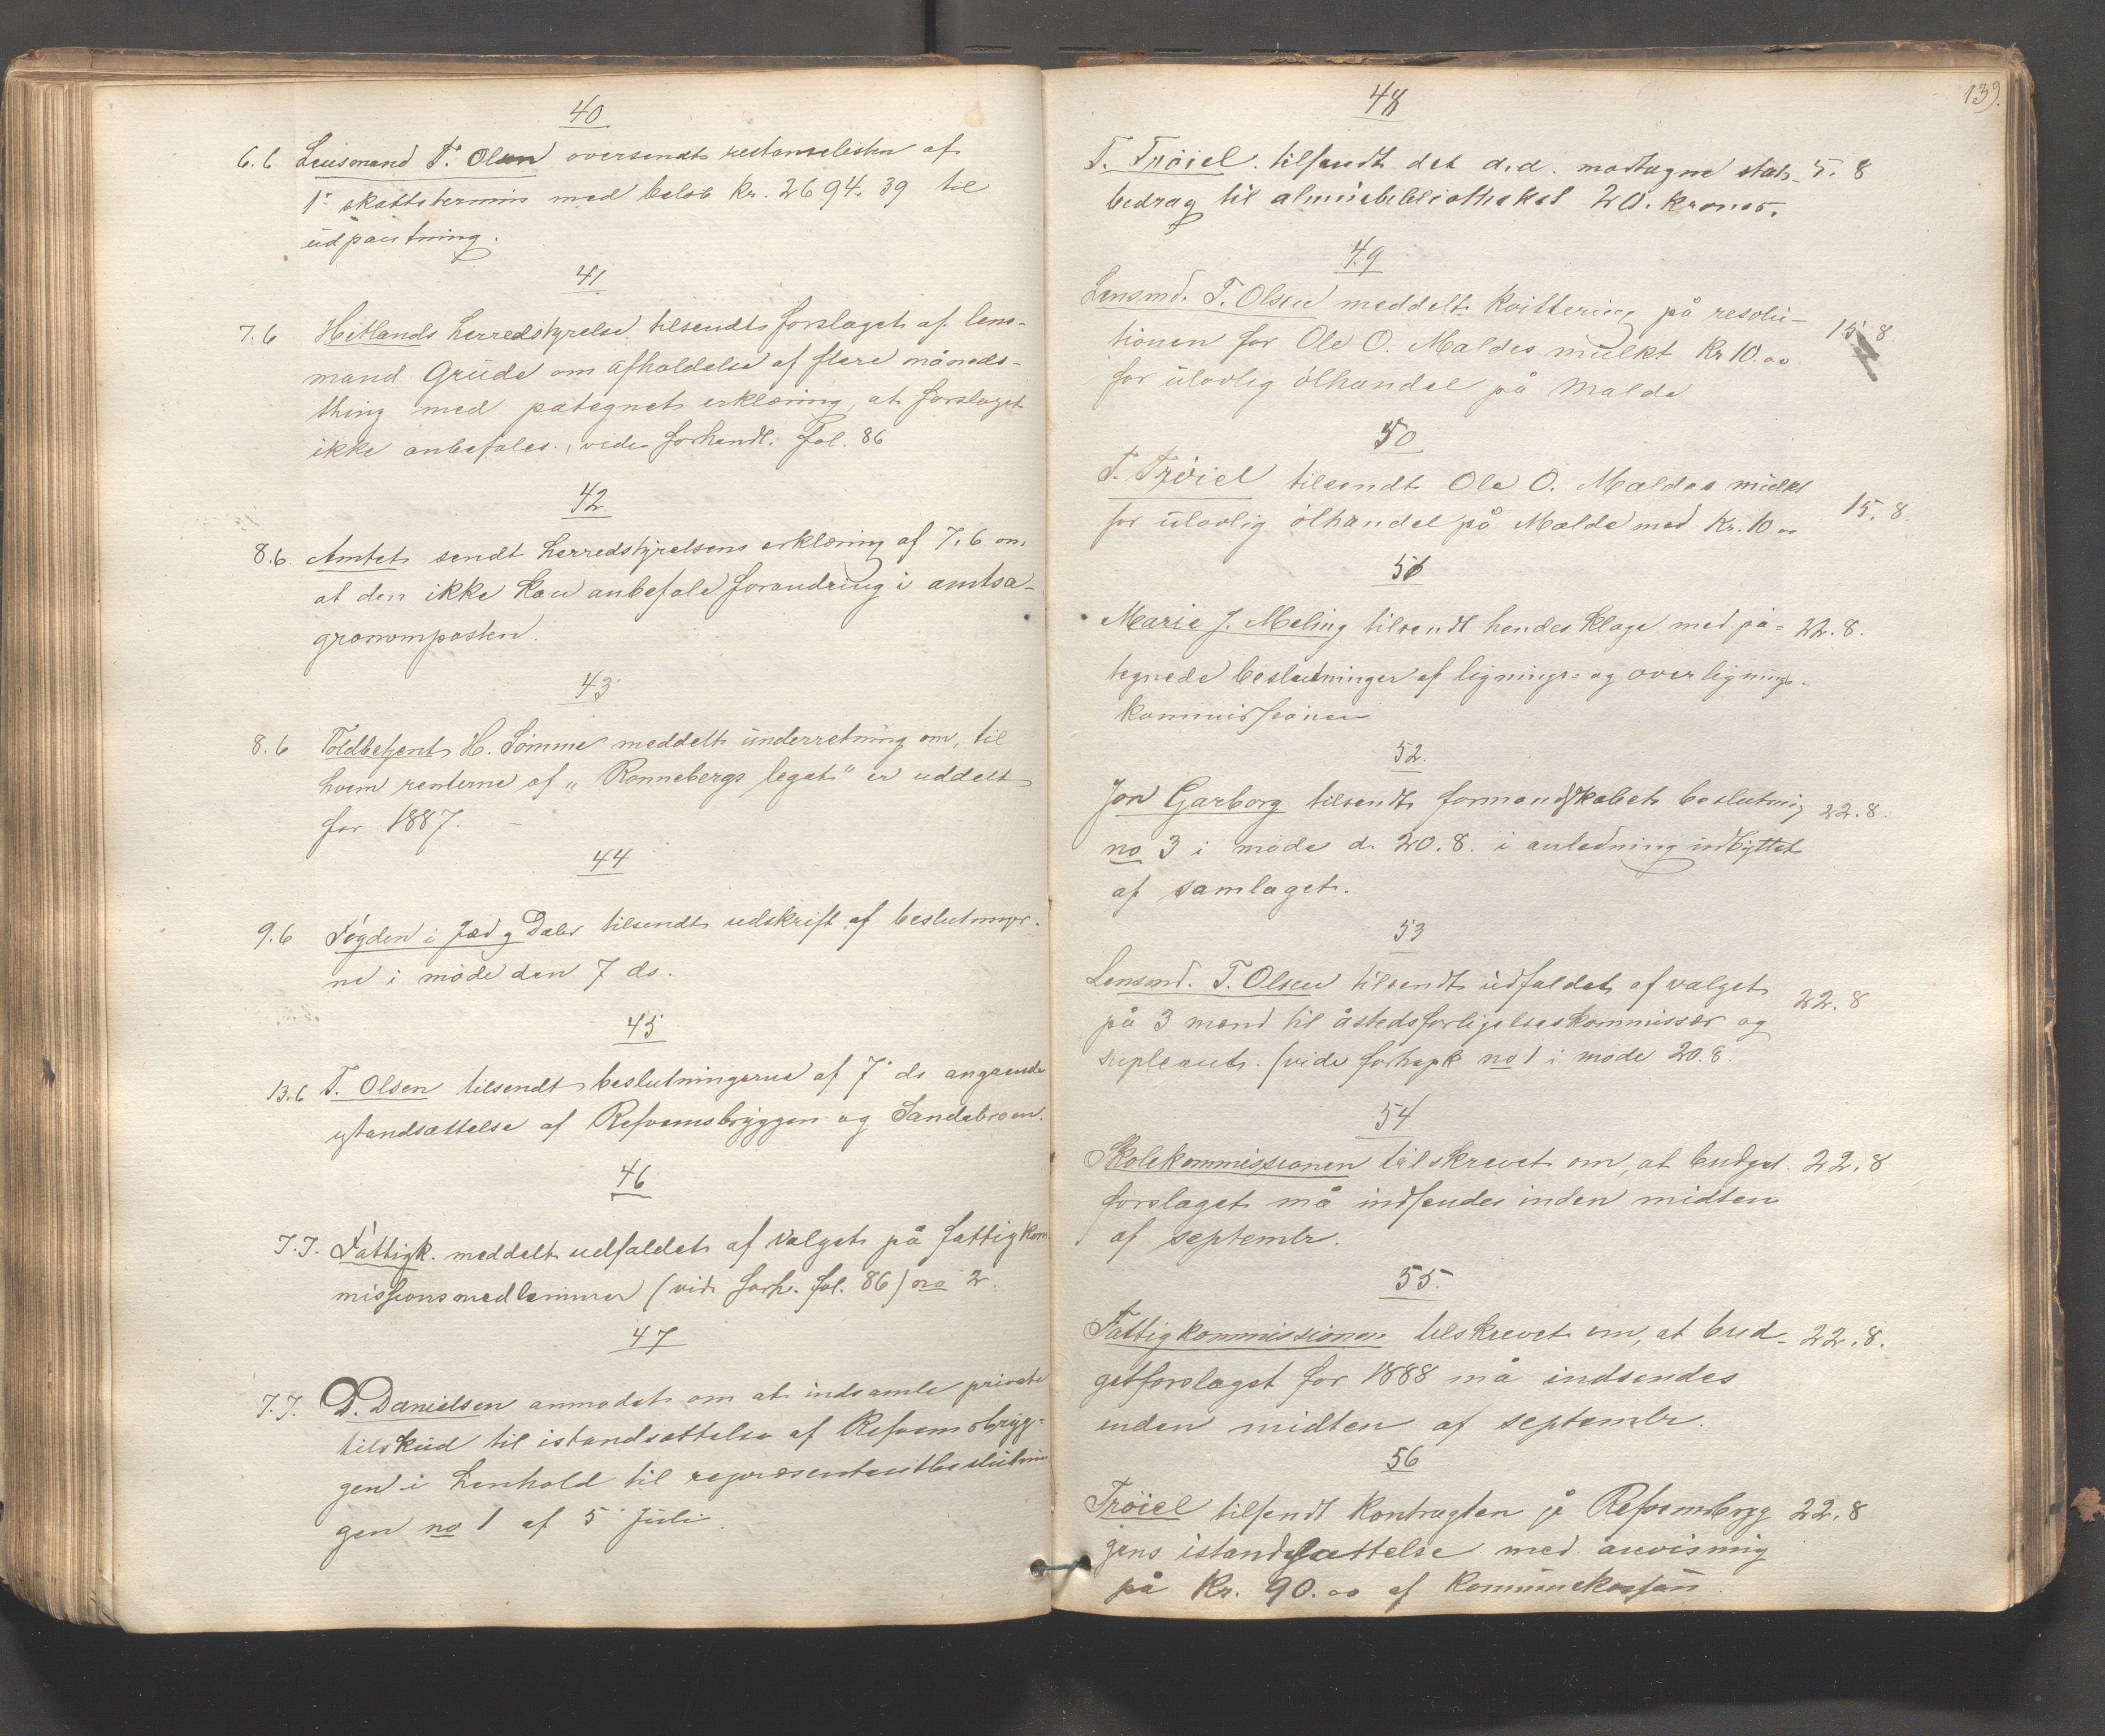 40
6.6 Lensmand T. Olsen oversendt restanselisten af
1ste skattetermin med beløb Kr. 2694.39 til
udpantning.
41
7.6 Hetlands herredstyrelse tilsendt forslaget af lens-
mand Grude om afholdelse af flere måneds-
thing med påtegnet erklæring, at forslaget
ikke anbefales., vide forhandl. fol. 86
42
8.6 Amtet sendt herredstyrelsens erklæring af 7.6 om,
at den ikke kan anbefale forandring i amtsa-
gronomposten.
43
8.6 Toldbetjent H. Sömme meddelt underretning om, til
hvem renterne af „Ronnebergs legat" er uddelt
for 1887. —
44
9.6 Fogden i Jæd. og Daler tilsendt udskrift af beslutninger-
ne i møde den 7 ds.
45
13.6 T. Olsen tilsendt beslutningerne af 7 ds angående
istandsættelse af Refsemsbryggen og Sandebroen.
46
7.7. Fattigk. meddelt udfaldet af valget på fattigkom-
missionsmedlemmer (vide forh. fol. 86) no 2.
47
7.7. D. Danielsen anmodet om at indsamle private
tilskud til istandsættelse af Refsemsbryg-
gen i henhold til repræsentantbeslutnin-
gen no 1 af 5 Juli.
139.
48
T. Tröiel tilsendt det d.d. modtagne stats- 5.8
bedrag til almuebibliotheket 20. kroner.
49
Lensmd. T. Olsen meddelt kvittering på resolu-
tionen for Ole O. Maldes mulkt Kr 10.00 15.8
for ulovlig ölhandel på Malde
50
T. Tröiel tilsendt Ole O. Maldes mulkt
for ulovlig ölhandel på Malde med Kr. 10.00 15.8.
51
Marie J. Meling tilsendt hendes klage med på- 22.8.
tegnede beslutninger af lignings- og overlignings-
kommissionen
52.
Jon Garborg tilsendt formandskabets beslutning 22.8.
no 3 i møde d. 20.8. i anledning indbyttet
af samlaget.
53
Lensmd. T. Olsen tilsendt udfaldet af valget 22.8
på 3 mænd til åstedsforligelseskommissær og
supleant. (vide no 1 i møde 20.8.
54
Skolekommissionen tilskrevet om, at budget- 22.8
forslaget må indsendes inden midten
af septembr.
55.
Fattigkommissionen tilskrevet om, at bud- 22.8.
getforslaget for 1888 må indsendes
inden midten af septembr.
56
Tröiel tilsendt kontragten på Refsemsbryg 22.8
gens istandsættelse med anvisning
på Kr. 90.00 af kommunekassen